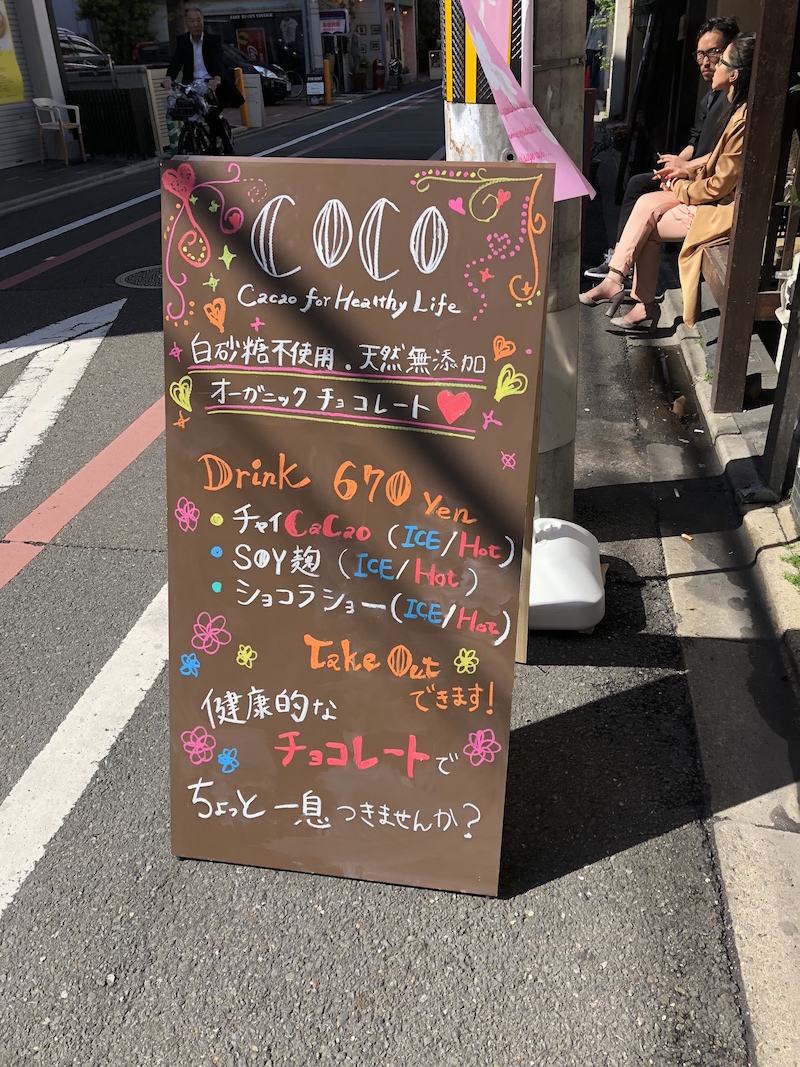 COCO
Cacao for Healthy Life
白砂糖不使用.天然無添加
オーガニックチョコレート
Drink 670 Yen
チャイCaCao (ICE/Hot)
SOY麹 (ICE/Hot)
ショコラショー(ICE/Hot)
Take Out
できます!
健康的な
チョコレートで
ちょっと一息つきませんか?